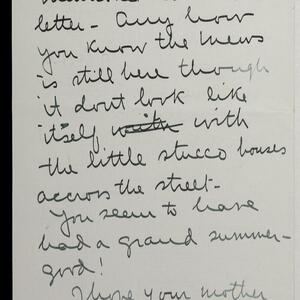 letter - Any how
you know the Mews
is still here though
it dont look like
itself with
the little stucco houses
accross the street -
You seem to have
had a grand summer -
good!
I hope your mother